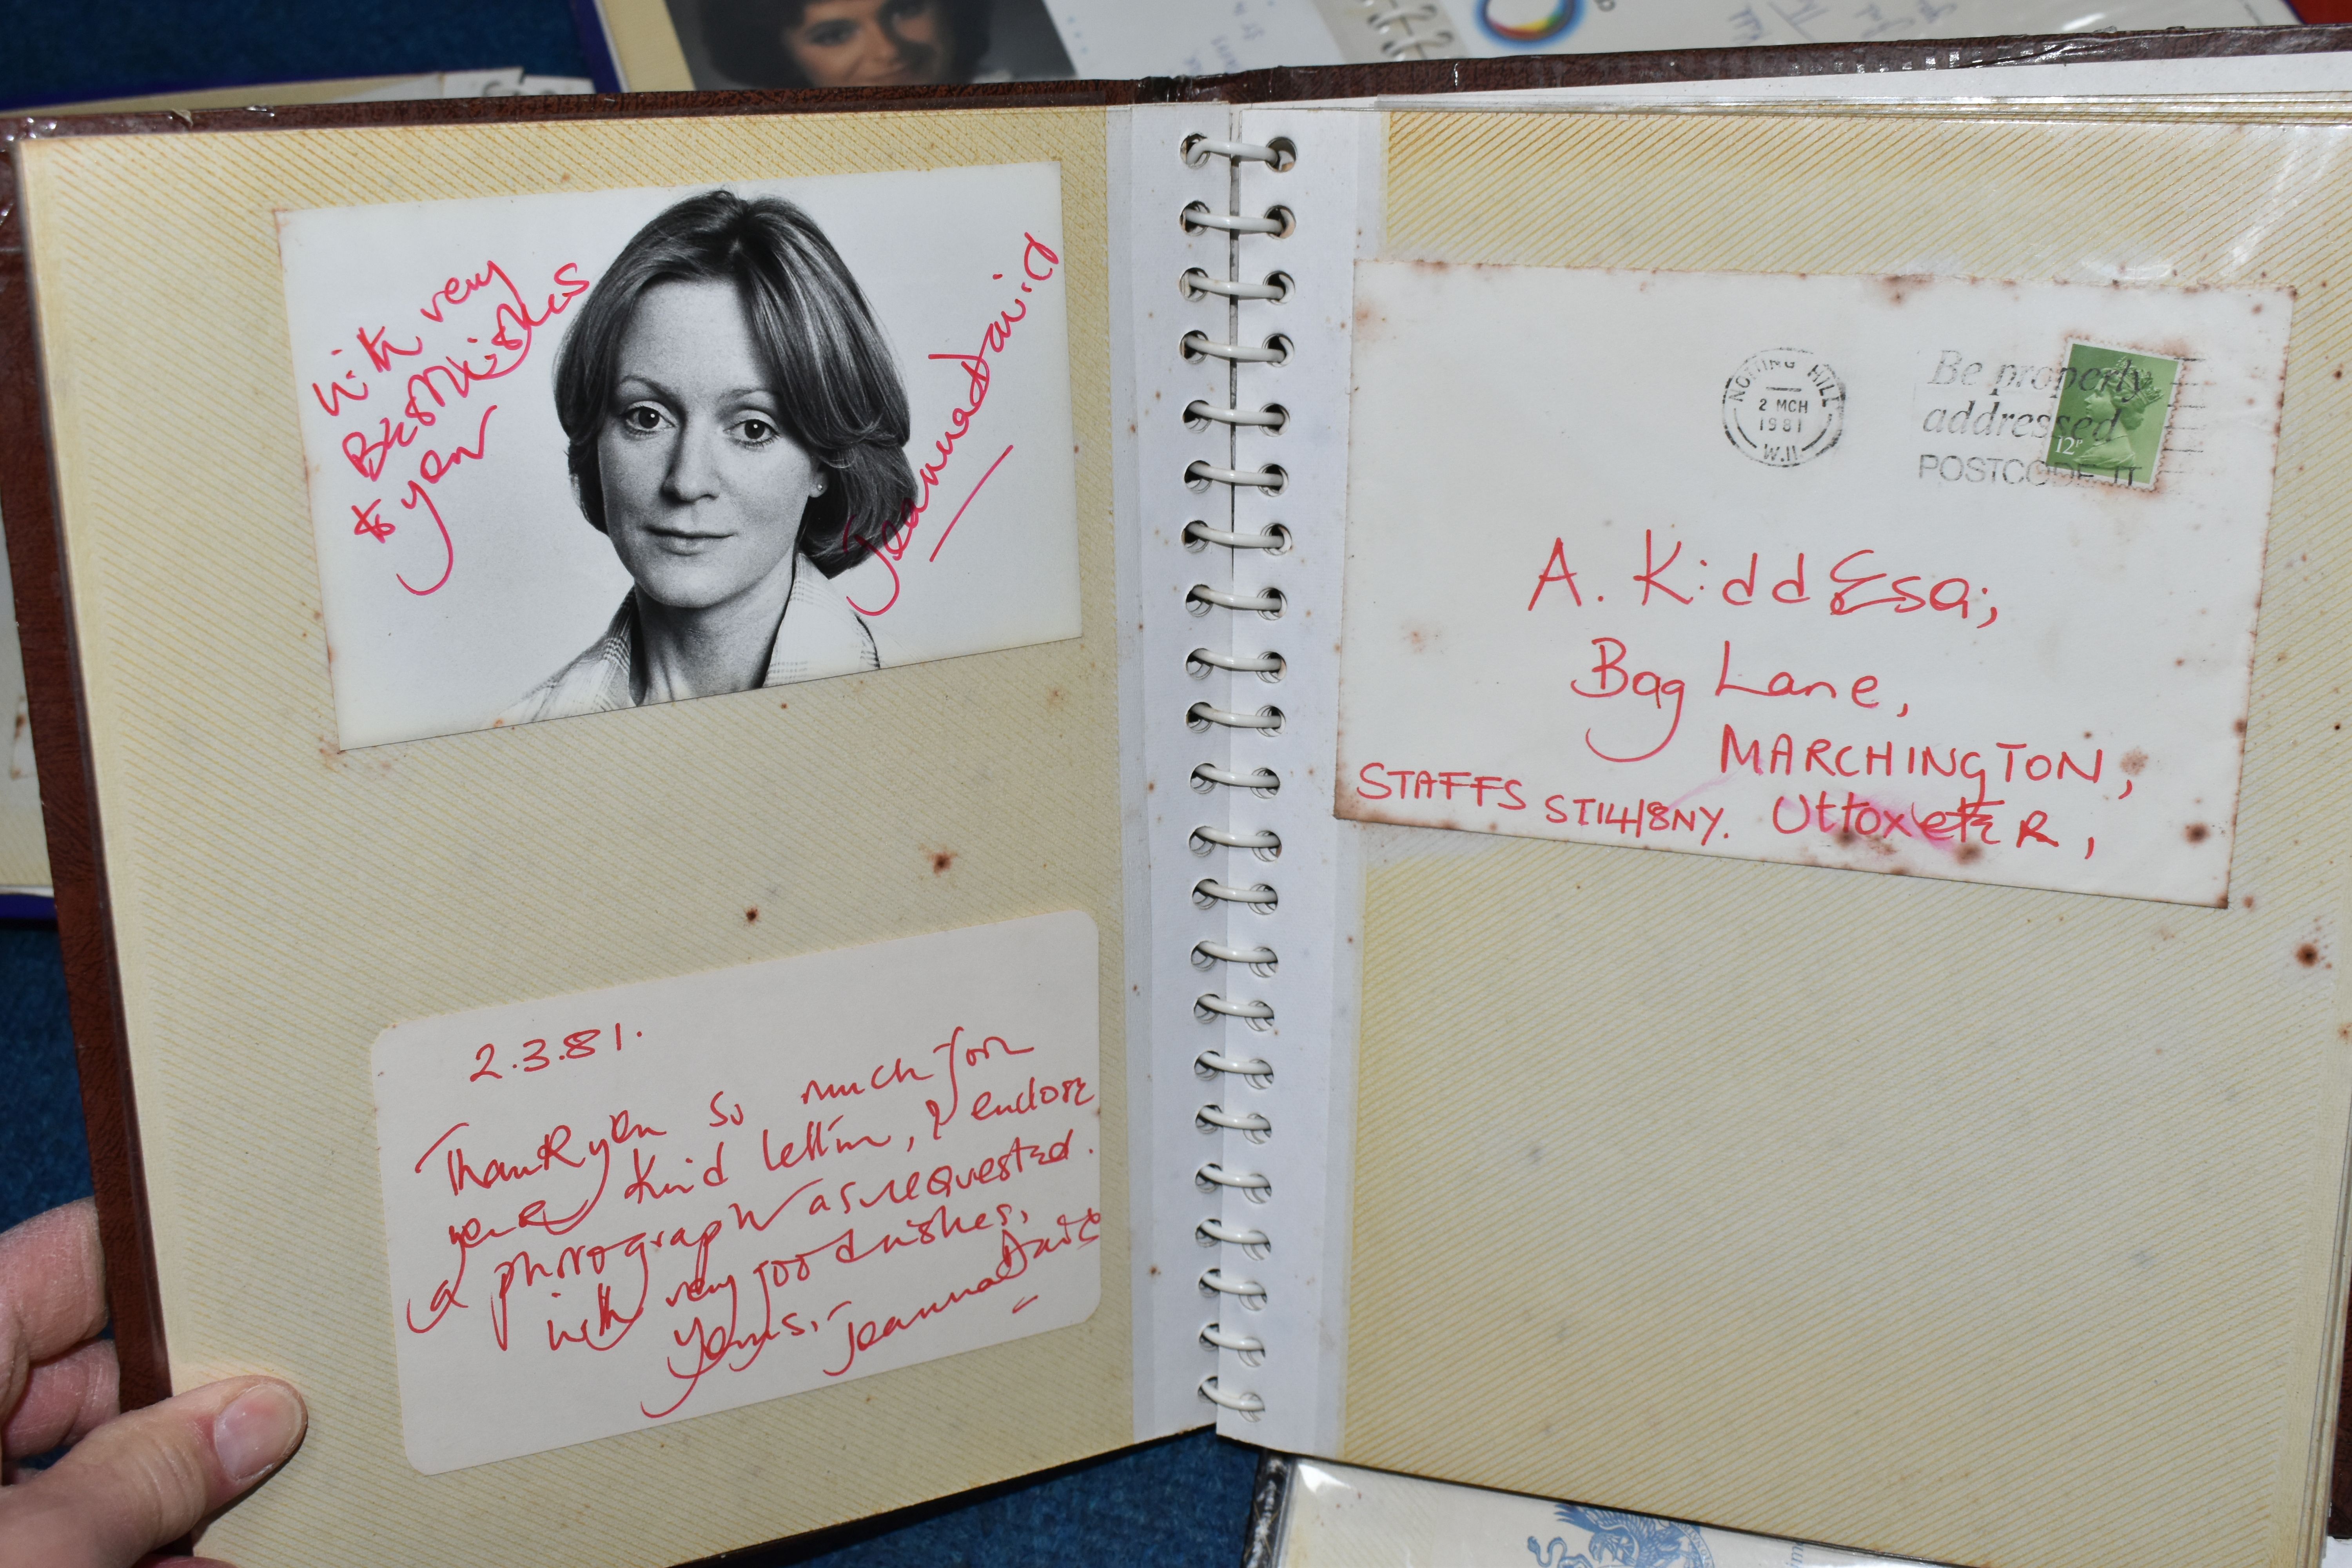 With very
Best Wishes
to you
Jeanna David
2.3.81.
Thank you so much for
your kind letter, I enclose
a photograph as requested.
With very good wishes,
Yours,-
Jeanna David
NOTTING HILL
2 MCH
1981
W.11
Be properly
addressed
POSTCODE IT
12P
A. Kidd Esq;
Bag Lane,
MARCHINGTON,
Uttoxeter,
STAFFS ST14 8NY.